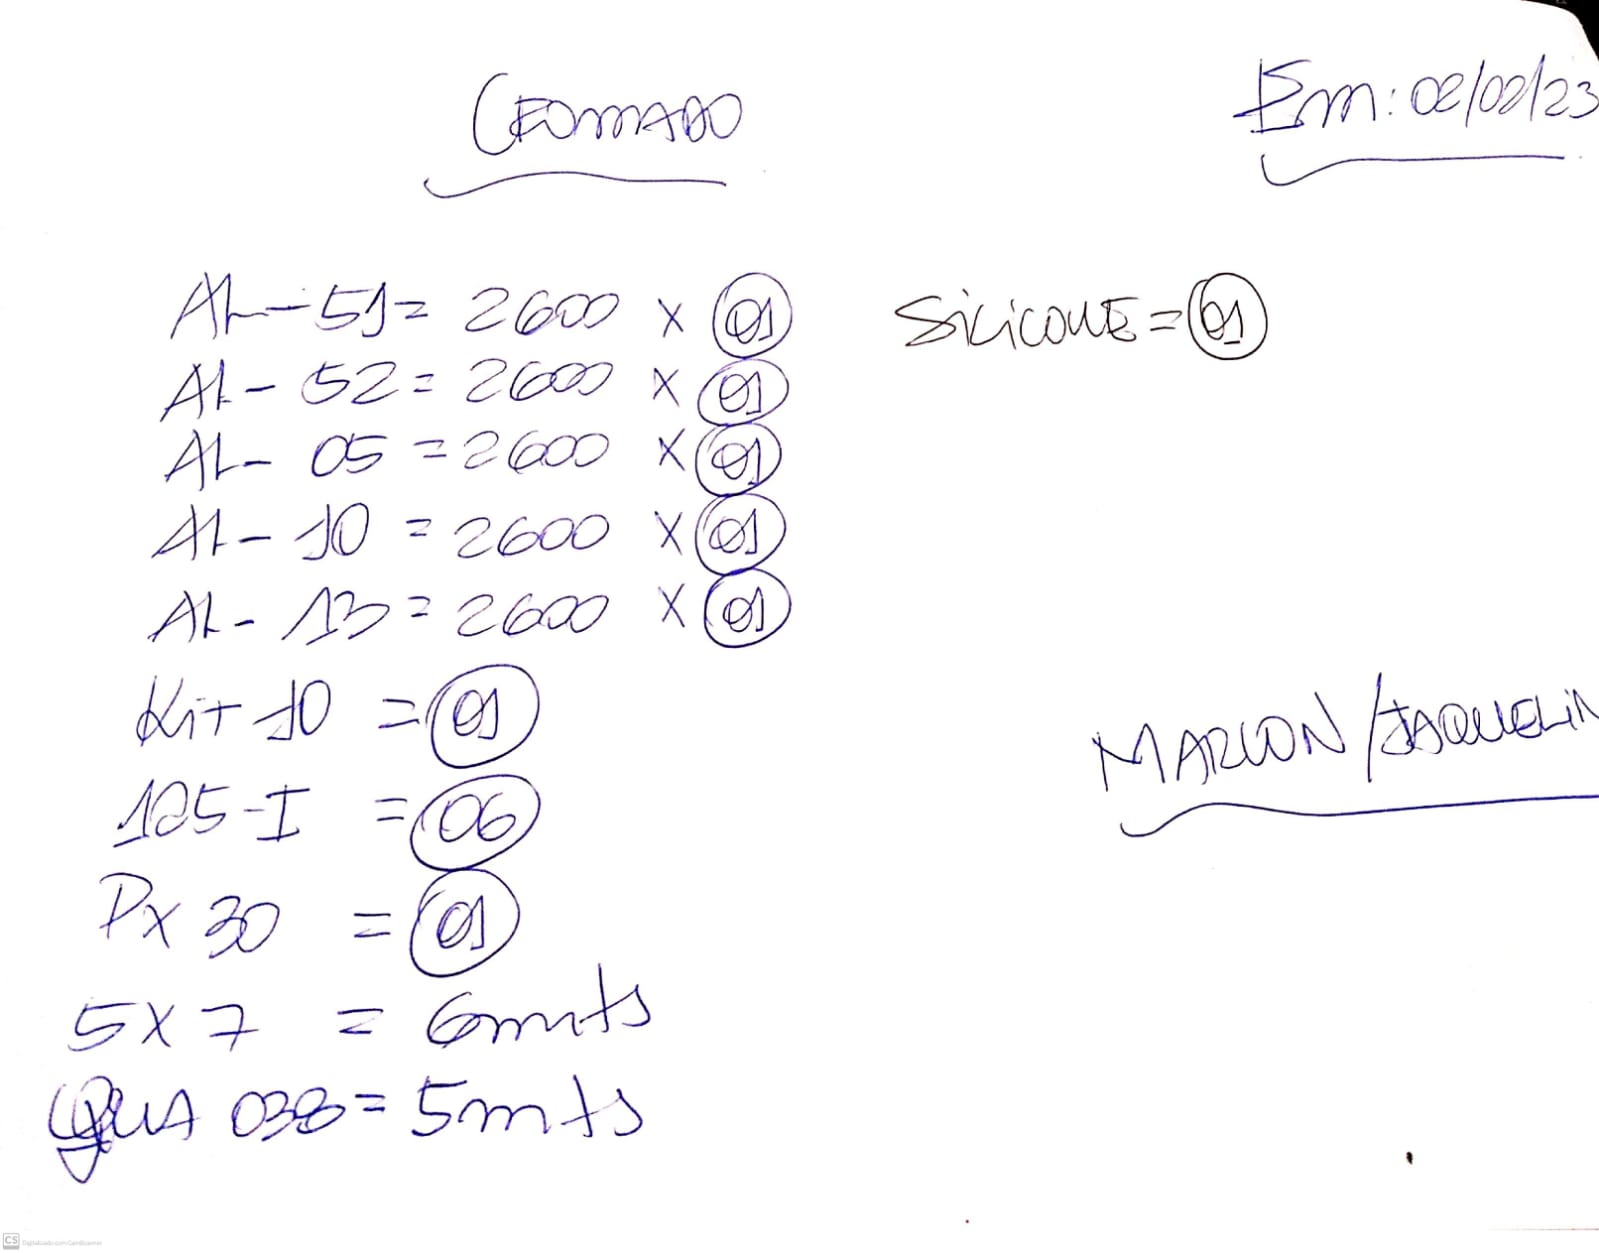 CROMADO
Em: 02/02/23
AL-51= 2600 x 01
SILICONE = 01
AL-52= 2600 x 01
AL-05 = 2600 x 01
AL-10 = 2600 x 01
AL-13= 2600 x 01
Kit 10 = 01
125-I = 06
Px 30 = 01
5x7 = 6mts
038= 5mts
MARLON/JAQUELIN
CS Digitalizado com CamScanner